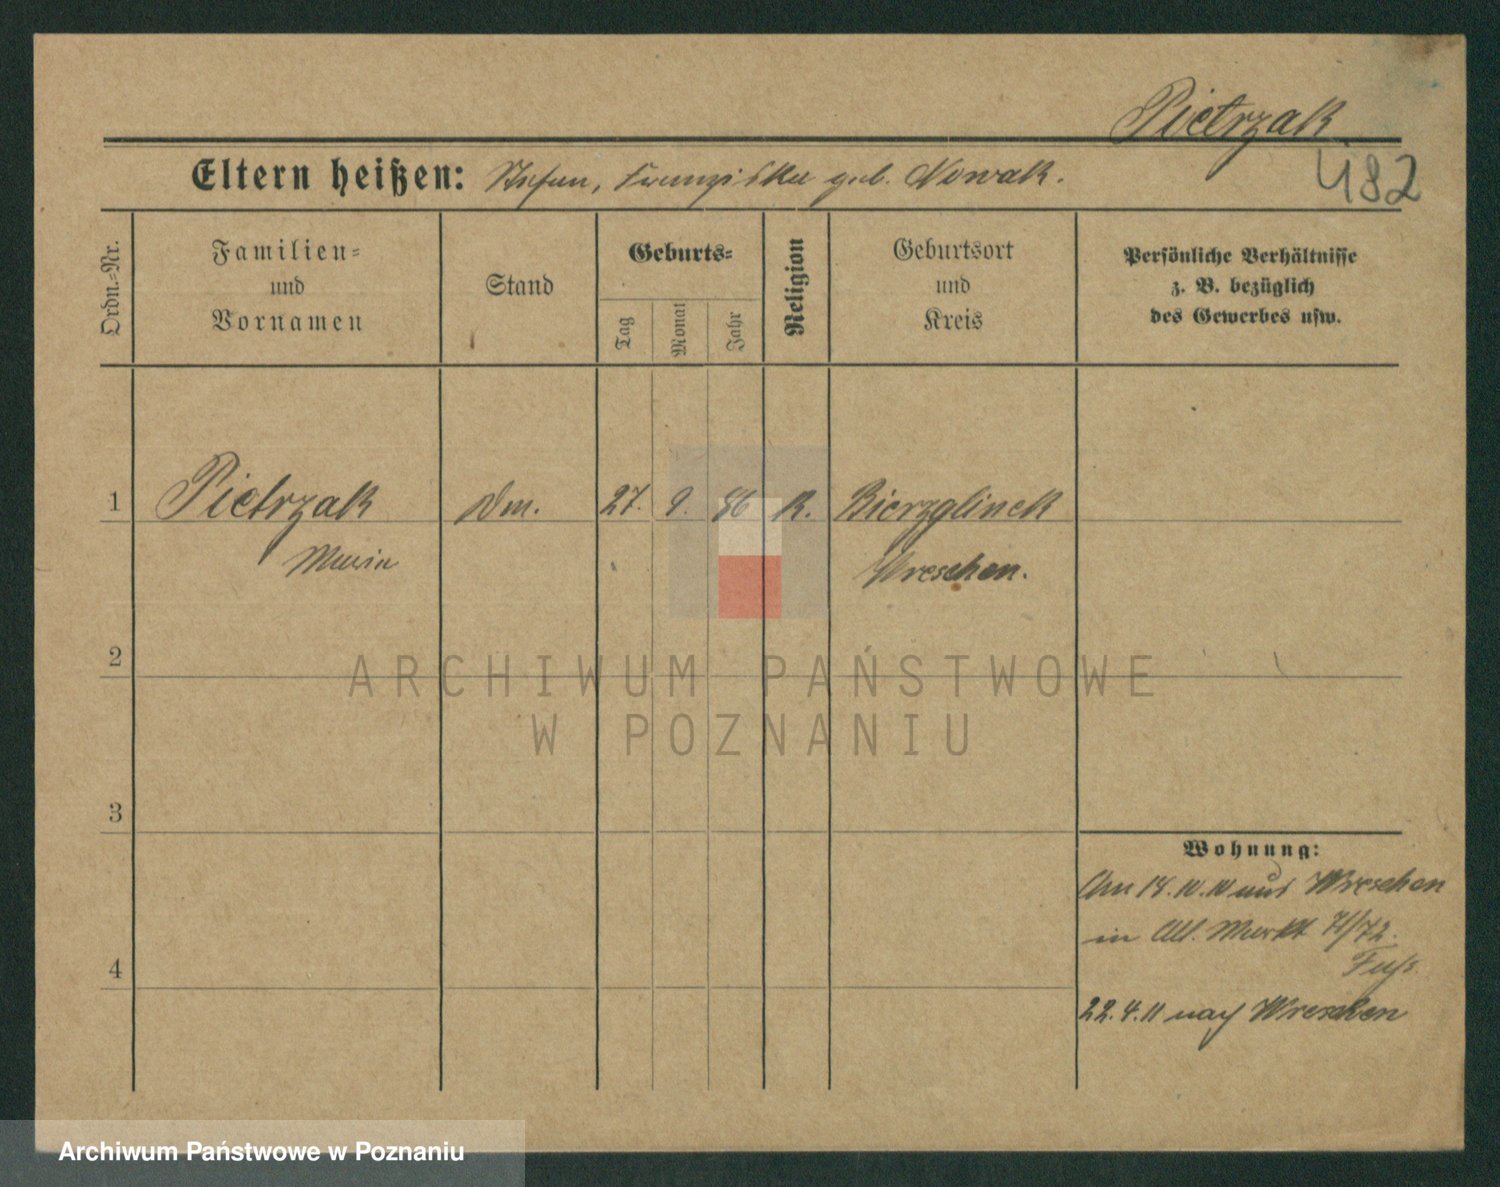 Pietrzak
482
Eltern heißen: Stefan, Franziska geb. Nowak.
Ordn.-Nr.
Familien-
und
Vornamen
Stand
Geburts-
Tag
Monat
Jahr
Religion
Geburtsort
und
Kreis
Persönliche Verhältnisse
z. B. bezüglich
des Gewerbes usw.
1 Pietrzak 27. 9. 86 K. Bierzglinek
Maria Wreschen.
2
3
4
Wohnung:
Am 18.10.10 aus Wreschen
in Alt. Markt 71/72.
22.4.11 nach Wreschen
ARCHIWUM PAŃSTWOWE
W POZNANIU
Archiwum Państwowe w Poznaniu